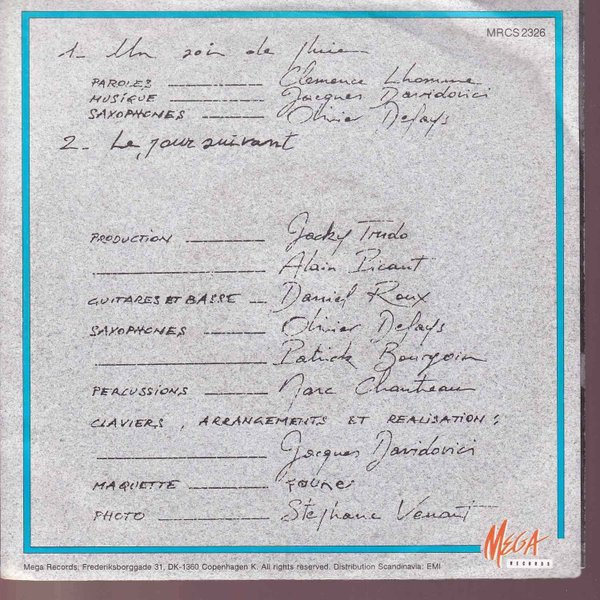 MRCS 2326
1- Un soir de pluie
PAROLES Clemence Lhomme
MUSIQUE Jacques Davidovici
SAXOPHONES Olivier Defays
2- Le jour suivant
PRODUCTION Jacky Trudo
Alain Picaut
GUITARES ET BASSE Daniel Roux
SAXOPHONES Olivier Defays
Patrick Bourgoin
PERCUSSIONS Marc Chanteau
CLAVIERS, ARRANGEMENTS ET REALISATION:
Jacques Davidovici
MAQUETTE
PHOTO Stéphane Venant
MEGA
RECORDS
Mega Records, Frederiksborggade 31, DK-1360 Copenhagen K. All rights reserved. Distribution Scandinavia: EMI